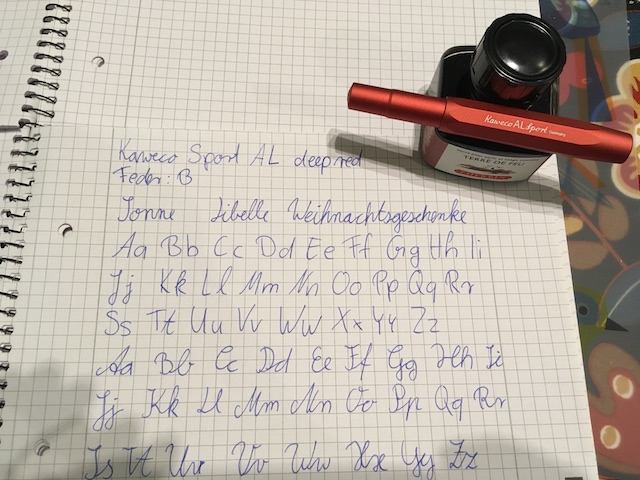 Kaweco Sport AL deepred
Feder: B
Sonne Libelle Weihnachtsgeschenke
Aa Bb Cc Dd Ee Ff Gg Hh Ii
Jj Kk Ll Mm Nn Oo Pp Qq Rr
Ss Tt Uu Vv Ww Xx Yy Zz
Aa Bb Cc Dd Ee Ff Gg Hh Ii
Jj Kk Ll Mm Nn Oo Pp Qq Rr
Ss Tt Uu Vv Ww Xx Yy Zz
Kaweco AL Sport Germany
TERRE DE FEU